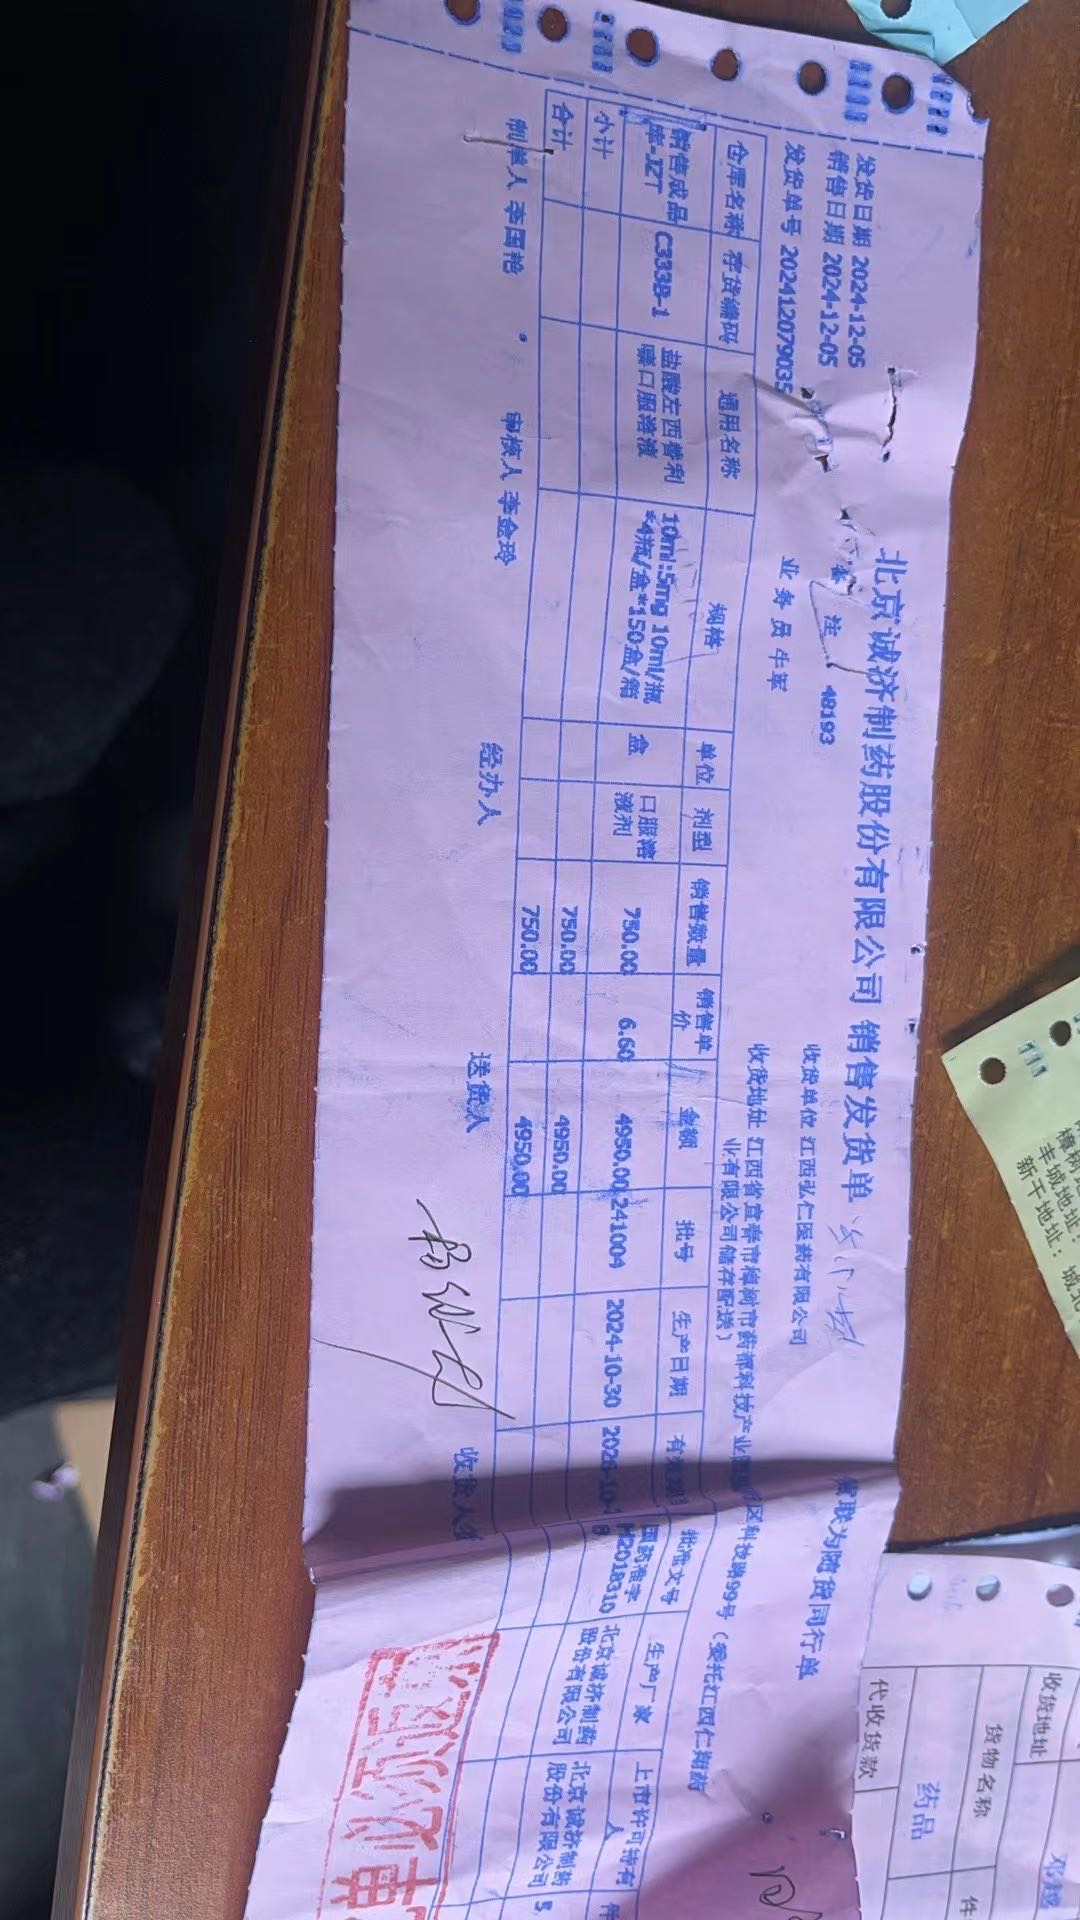 北京诚济制药股份有限公司 销售发货单
发货日期 2024-12-05
销售日期 2024-12-05
备 注 48193
收货单位 江西弘仁医药有限公司
联为随货同行单
发货单号 202412079035
业务员 牛军
收货地址 江西省宜春市樟树市药都科技产业园 区科技路99号（委托江西仁翔药
业有限公司储存配送）
仓库名称 存货编码 通用名称 规格 单位 剂型 销售数量 销售单价 金额 批号 生产日期 有效期 批准文号 生产厂家 上市许可持有人 件
销售成品 C333B-1 盐酸左西替利 10ml:5mg 10ml/瓶 盒 口服溶 750.00 6.60 4950.00 241004 2024-10-30 2026-10- 国药准字 北京诚济制药 北京诚济制药 5.
库-JZT 嗪口服溶液 *4瓶/盒*150盒/箱 液剂 H2018310 股份有限公司 股份有限公司
小计 750.00 4950.00
合计 750.00 4950.00
制单人 李国艳 审核人 李金玲 经办人 送货人 收货人
收货地址
货物名称
药品
件
代收货款
樟树
丰城地址：
新干地址：城北